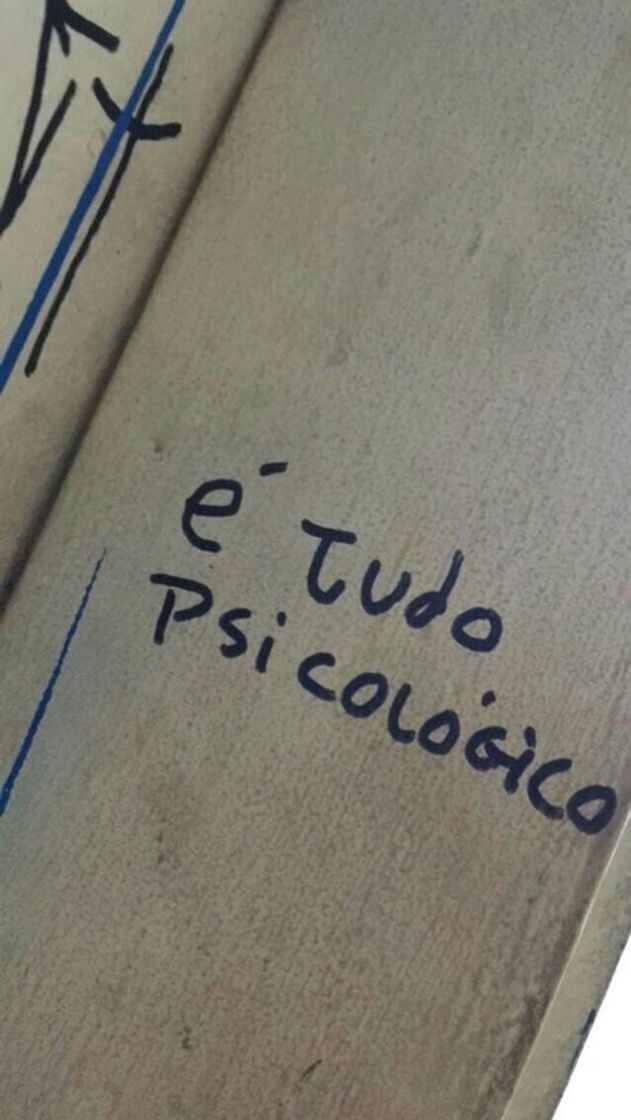 é Tudo
Psicológico